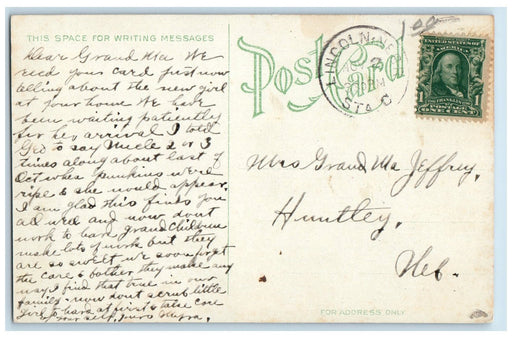 THIS SPACE FOR WRITING MESSAGES
Dear Grand Ma We
recd your card just now
telling about the new girl
at your home We have
been waiting patiently
for her arrival I told
Geo to say Uncle 2 or 3
times along about last of
Oct when punkins were
ripe & she would appear.
I am glad this finds you
all well and now dont
work to hard, grand children
make lots of work but they
are so sweet we soon forget
the care & bother they make any
way I find that true in our
family - now dont scrub little
girl to hard at first & take care
of your self. yours
Post Card
LINCOLN, NEB
STA. C
100
UNITED STATES OF AMERICA
1
Mrs Grand Ma Jeffrey,
Huntley,
Neb.
FOR ADDRESS ONLY